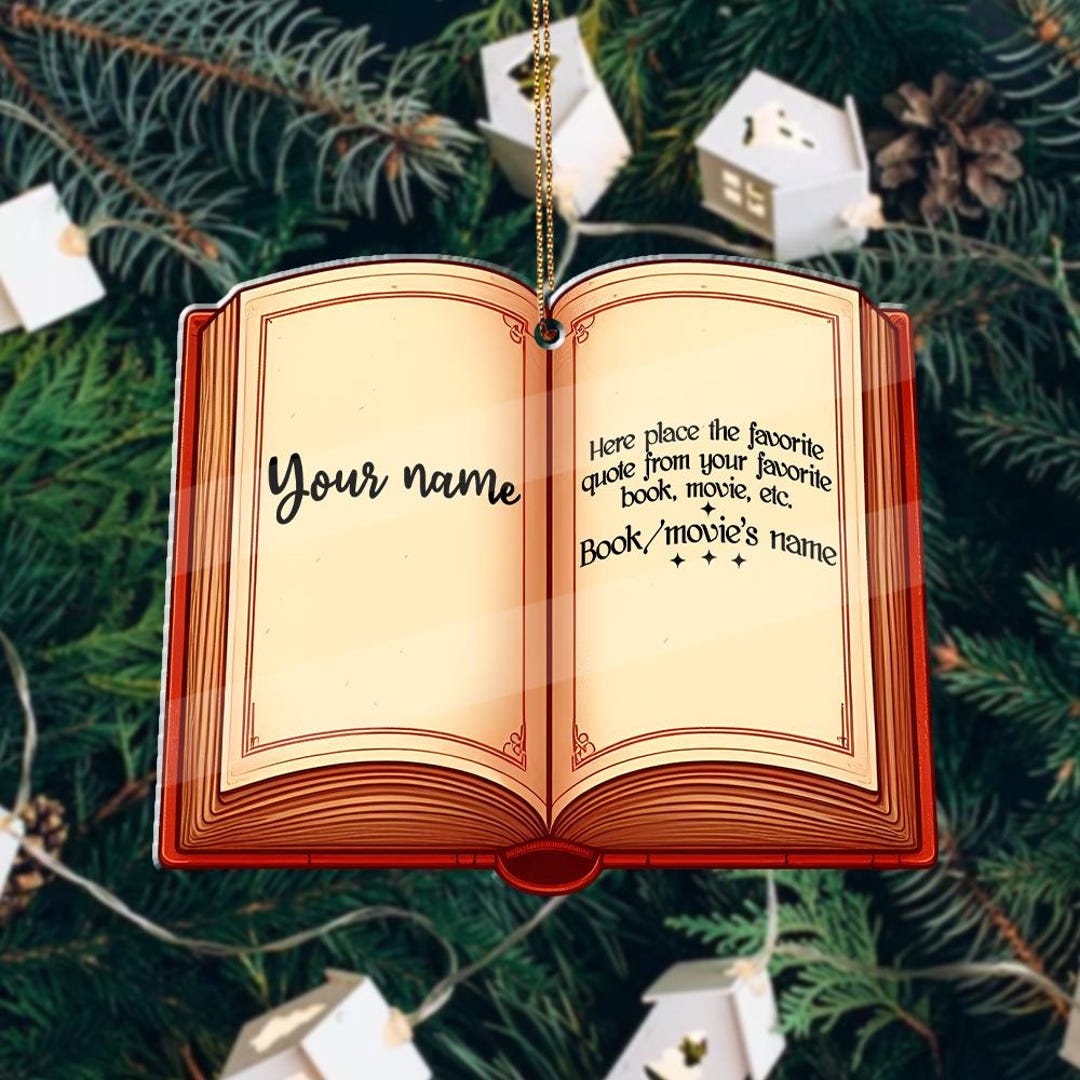 Your name
Here place the favorite
quote from your favorite
book, movie, etc.
Book/movie's name